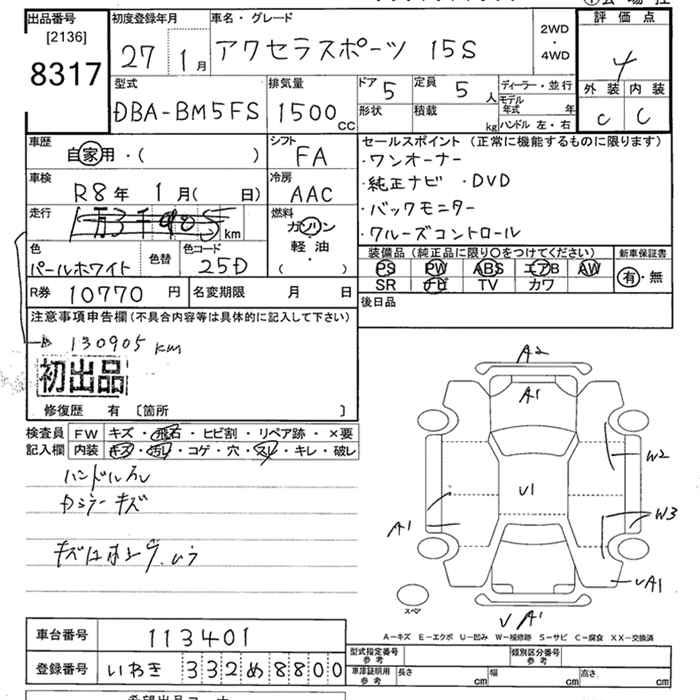 出品番号
[2136]
8317
初度登録年月
27 1月
車名・グレード
アクセラスポーツ 15S
2WD
・
4WD
評価点
4
外装 内装
C C
型式
DBA-BM5FS
排気量
1500cc
ドア 5
定員 5人
形状
積載 kg
ディーラー・並行
モデル年式 年
ハンドル 左・右
車歴
自家用・( )
シフト
FA
車検
R8年 1月( 日)
冷房
AAC
走行
km
燃料
ガソリン
軽油
( )
セールスポイント (正常に機能するものに限ります)
・ワンオーナー
・純正ナビ ・DVD
・バックモニター
・クルーズコントロール
色
パールホワイト
色替
色コード
25D
装備品 (純正品に限り○をつけてください)
PS PW ABS エアB AW
SR ナビ TV カワ
新車保証書
有・無
R券 10770円
名変期限 月 日
後日品
注意事項申告欄 (不具合内容等は具体的に記入して下さい)
130905km
初出品
修復歴 有 [箇所 ]
検査員記入欄
FW キズ・飛石・ヒビ割・リペア跡・×要
内装 キズ・汚レ・コゲ・穴・スレ・キレ・破レ
ハンドルスレ
カミラーキズ
A2
A1
W2
U1
A1
W3
A1
A1
スペア
A-キズ E-エクボ U-凹み W-補修跡 S-サビ C-腐食 XX-交換済
車台番号 113401
登録番号 いわき 332 め 8800
型式指定番号 参考
類別区分番号 参考
車庫証明用 参考 長さ 幅 高さ